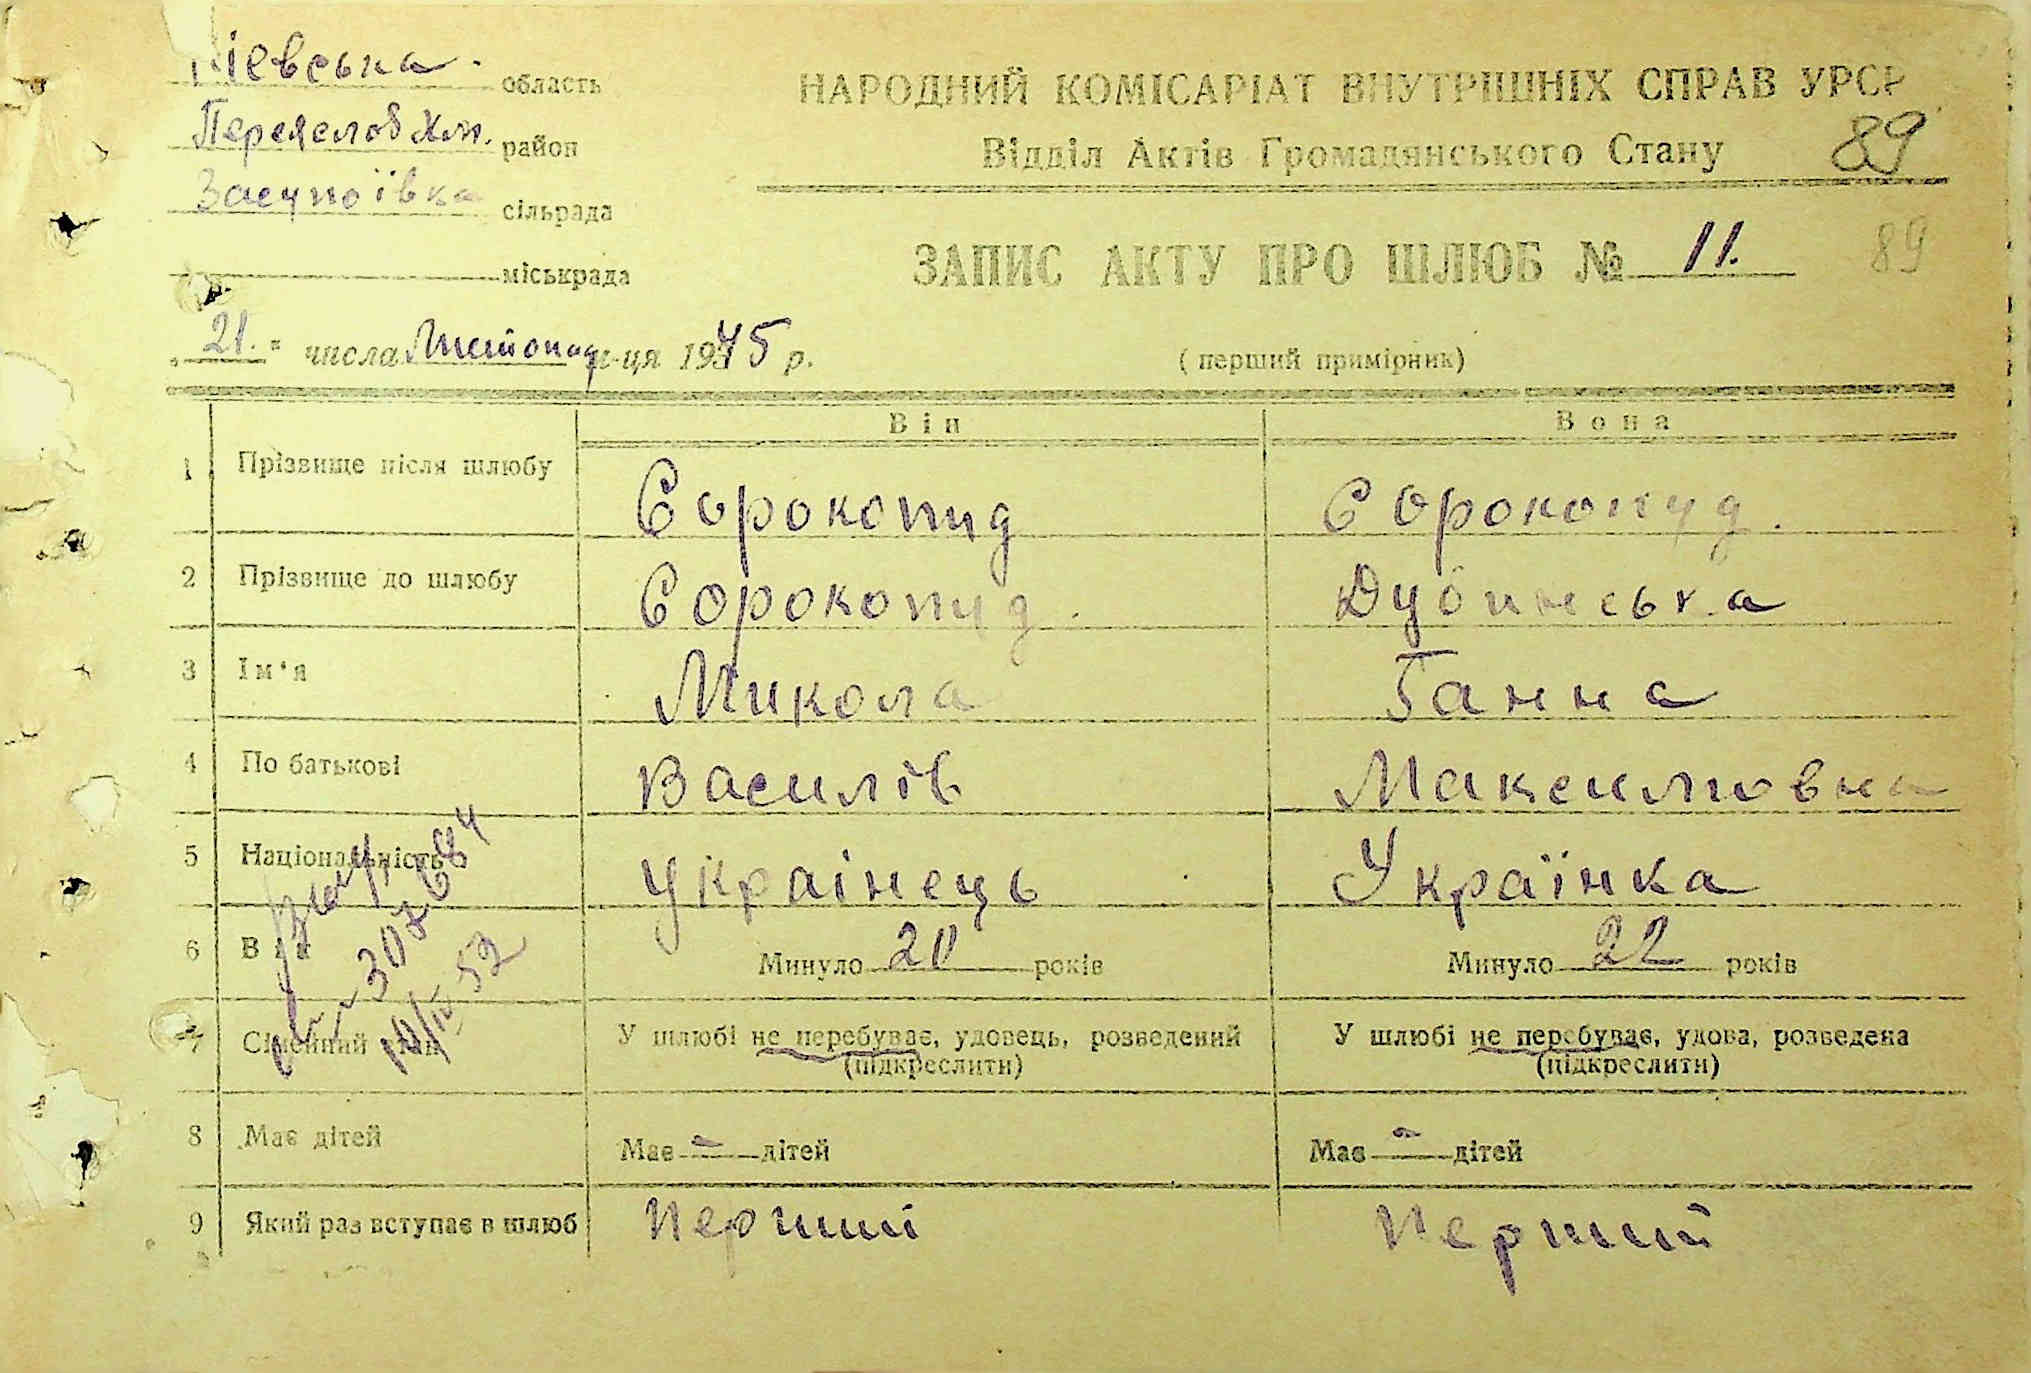 Кієвська область
Переяслов Хм. район
Засупоївка сільрада
міськрада
НАРОДНИЙ КОМІСАРІАТ ВНУТРІШНІХ СПРАВ УРСР
Відділ Актів Громадянського Стану
89
ЗАПИС АКТУ ПРО ШЛЮБ № 11.
89
„21." числа Листопад м-ця 1945 р.
(перший примірник)
Він Вона
1 Прізвище після шлюбу Сорокопуд Сорокопуд.
2 Прізвище до шлюбу Сорокопуд. Дубинська
3 Ім'я Микола Ганна
4 По батькові Василів Максимовна
5 Національність Украінець Українка
6 Вік Минуло 20 років Минуло 22 років
7 Сімейний стан У шлюбі не перебуває, удовець, розведений У шлюбі не перебуває, удова, розведена
(підкреслити) (підкреслити)
8 Має дітей Має - дітей Має - дітей
9 Який раз вступає в шлюб Перший Перший